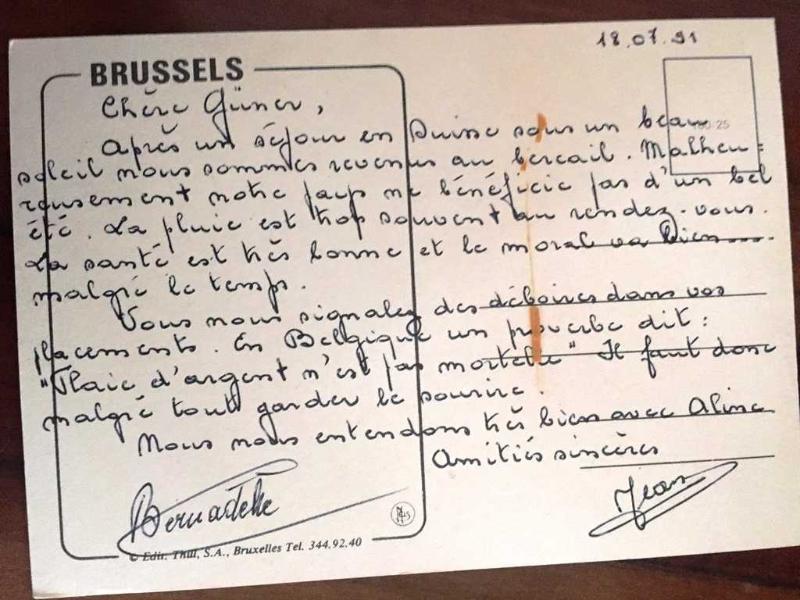 18.07.91
BRUSSELS
Chère Güner,
Après un séjour en Suisse sous un beau
soleil nous sommes revenus au bercail. Malheu=
reusement notre pays ne bénéficie pas d'un bel
été. La pluie est trop souvent au rendez-vous.
La santé est très bonne et le moral va bien
malgré le temps.
Vous nous signalez des déboires dans vos
placements. En Belgique un proverbe dit :
"Plaie d'argent n'est pas mortelle" Il faut donc
malgré tout garder le sourire.
Nous nous entendons très bien avec Aline
Amitiés sincères
Bernadette
Jean
© Edit. Thill, S.A., Bruxelles Tel. 344.92.40